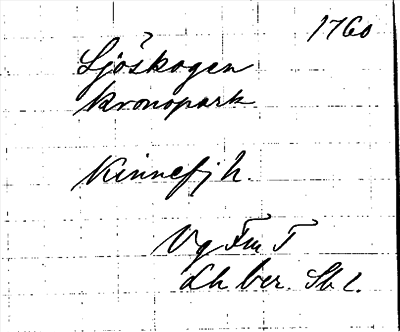 1760
Sjöskogen
kronopark
Kinnefj h.
Vg Fm T
Lh ber. Sb 2.